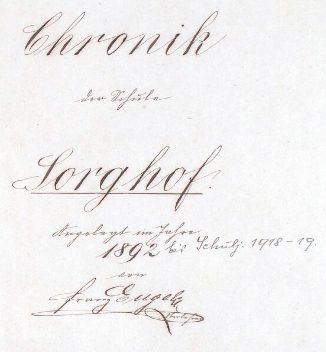 Chronik
der Schule
Sorghof.
Angelegt im Jahre
1892 bis Schulj. 1918-19.
von
Franz Engel